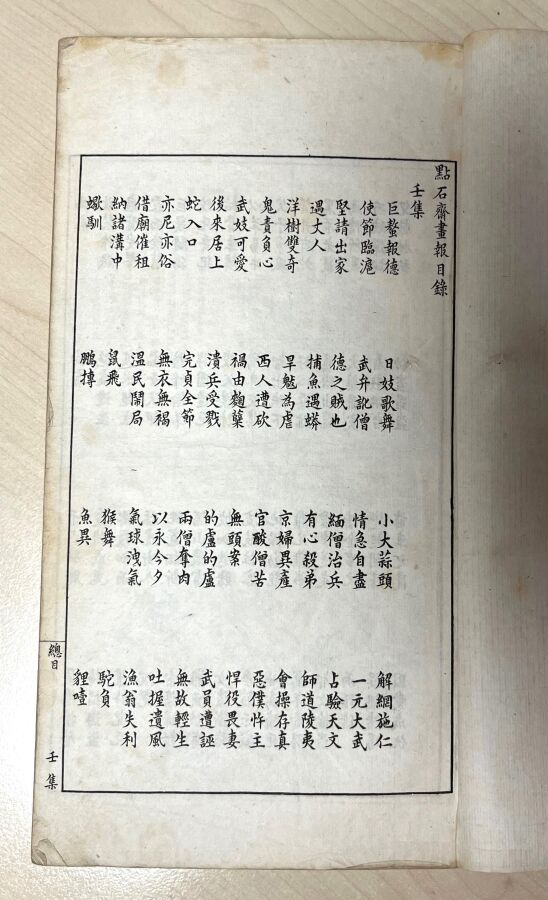 點石齋畫報目錄
壬集
巨鰲報德 日妓歌舞 小大蒜頭 解網施仁
使節臨滬 武弁訛僧 情急自盡 一元大武
堅請出家 德之賊也 緬僧治兵 占驗天文
遇丈人 捕魚遇蟒 有心殺弟 師道陵夷
洋樹雙奇 旱魃為虐 京婦異產 會操存真
鬼責負心 西人遭砍 官酸僧苦 惡僕忤主
武妓可愛 禍由麴櫱 無頭案 悍役畏妻
後來居上 潰兵受戮 的盧的盧 武員遭誣
蛇入口 完貞全節 兩僧奪肉 無故輕生
亦尼亦俗 無衣無褐 以永今夕 吐握遺風
借廟催租 溫民鬧局 氣球洩氣 漁翁失利
納諸溝中 鼠飛 猴舞 駝負
蠍馴 鵬摶 魚異 貍噎
總目 壬集